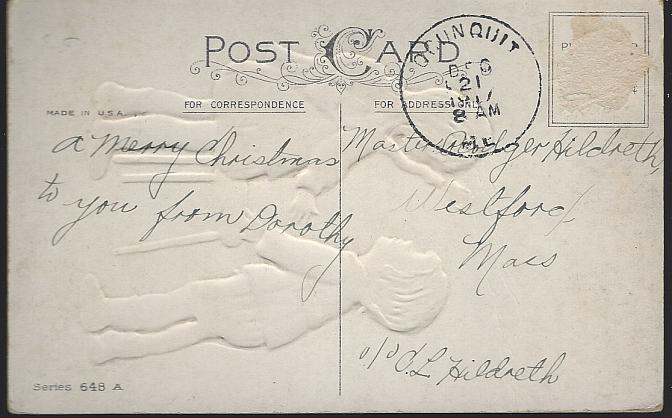 POST CARD
OGUNQUIT
DEC
21
8 AM
ME.
MADE IN U.S.A.
FOR CORRESPONDENCE
FOR ADDRESS ONLY
A Merry Christmas
to you from Dorothy
Master Rodger Hildreth,
Westford
Mass
c/o C. L Hildreth
Series 648 A.